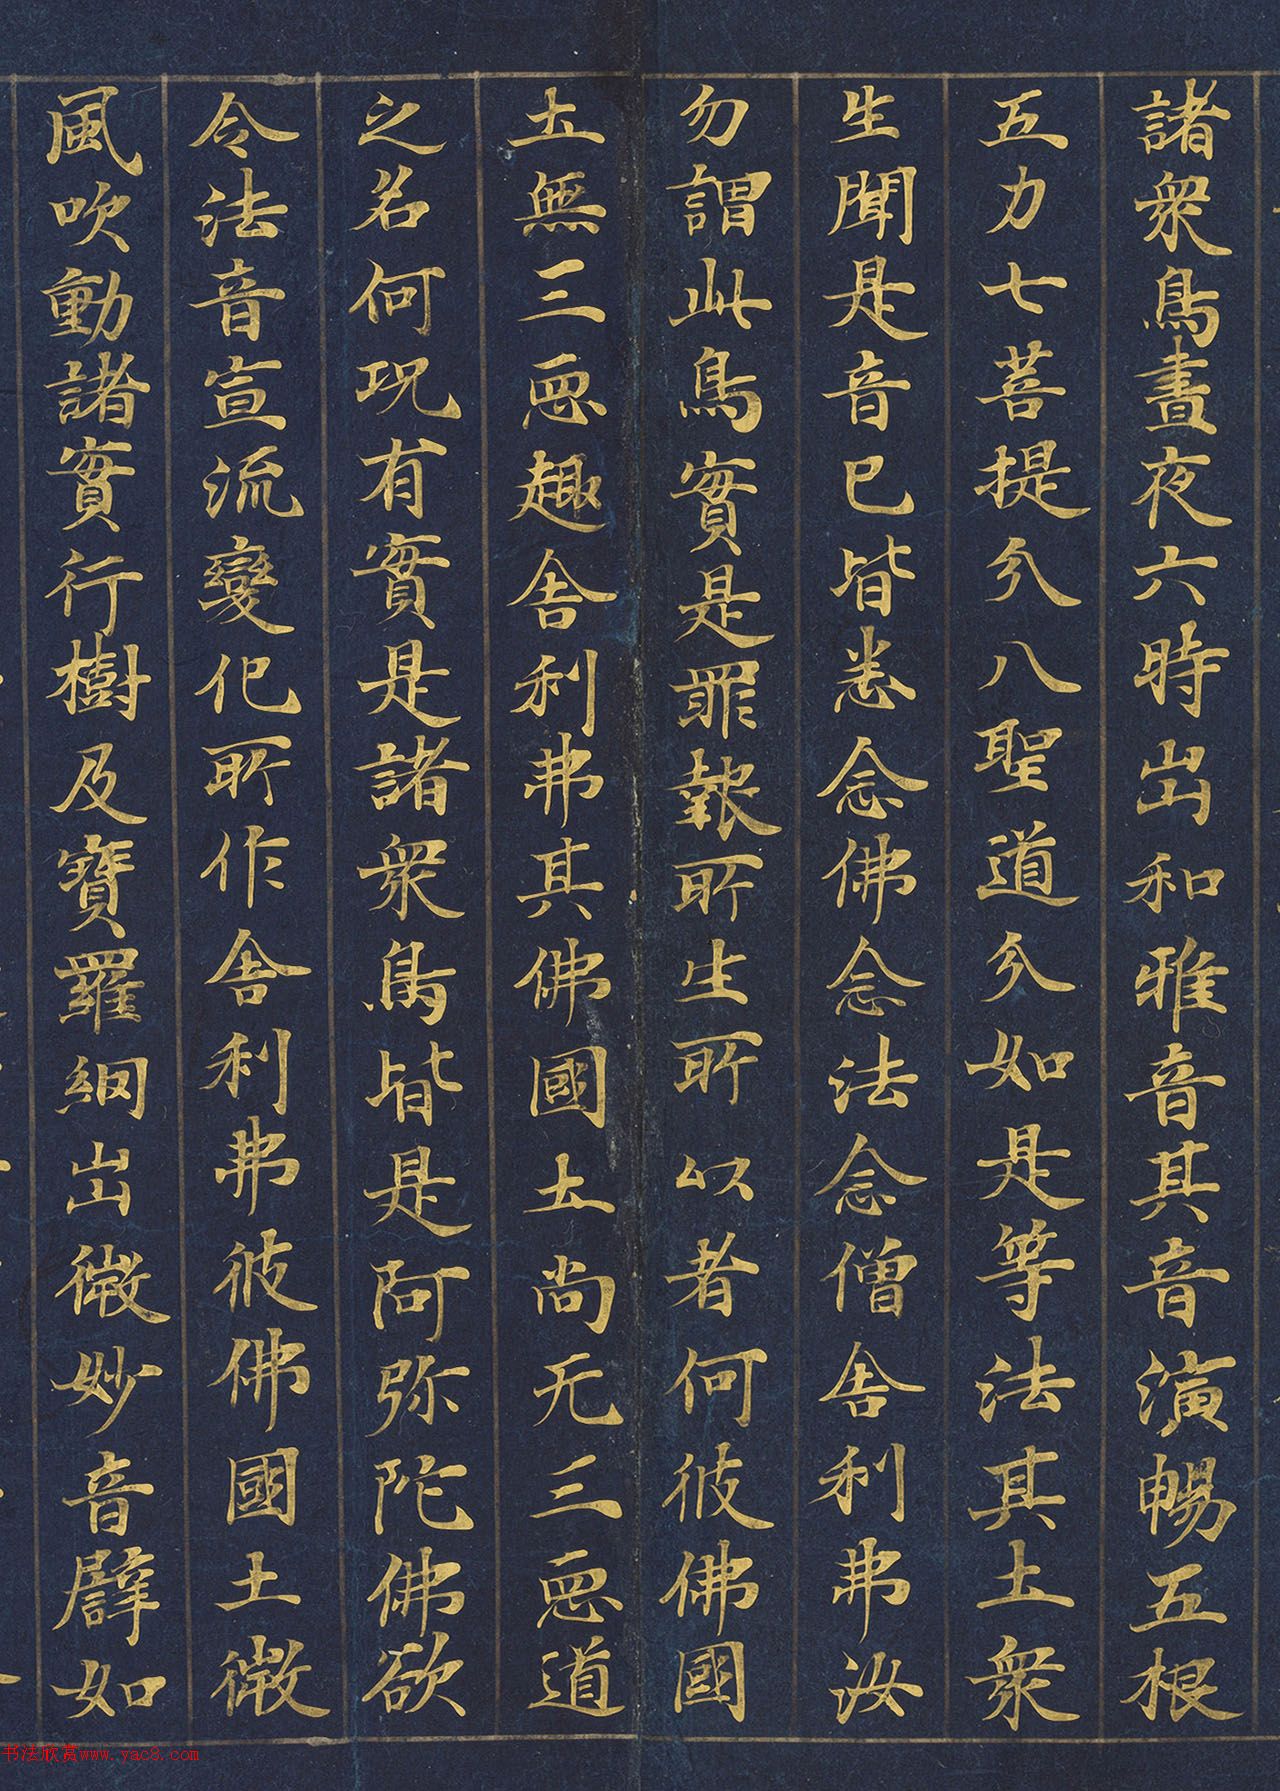 諸眾鳥晝夜六時出和雅音其音演暢五根
五力七菩提分八聖道分如是等法其土眾
生聞是音已皆悉念佛念法念僧舍利弗汝
勿謂此鳥實是罪報所生所以者何彼佛國
土無三惡趣舍利弗其佛國土尚无三惡道
之名何况有實是諸眾鳥皆是阿弥陀佛欲
令法音宣流變化所作舍利弗彼佛國土微
風吹動諸寶行樹及寶羅網出微妙音譬如
书法欣赏www.yac8.com